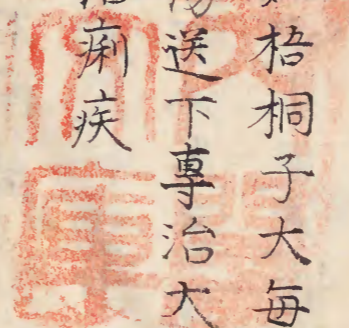 梧桐子大每
送下專治大
痢疾